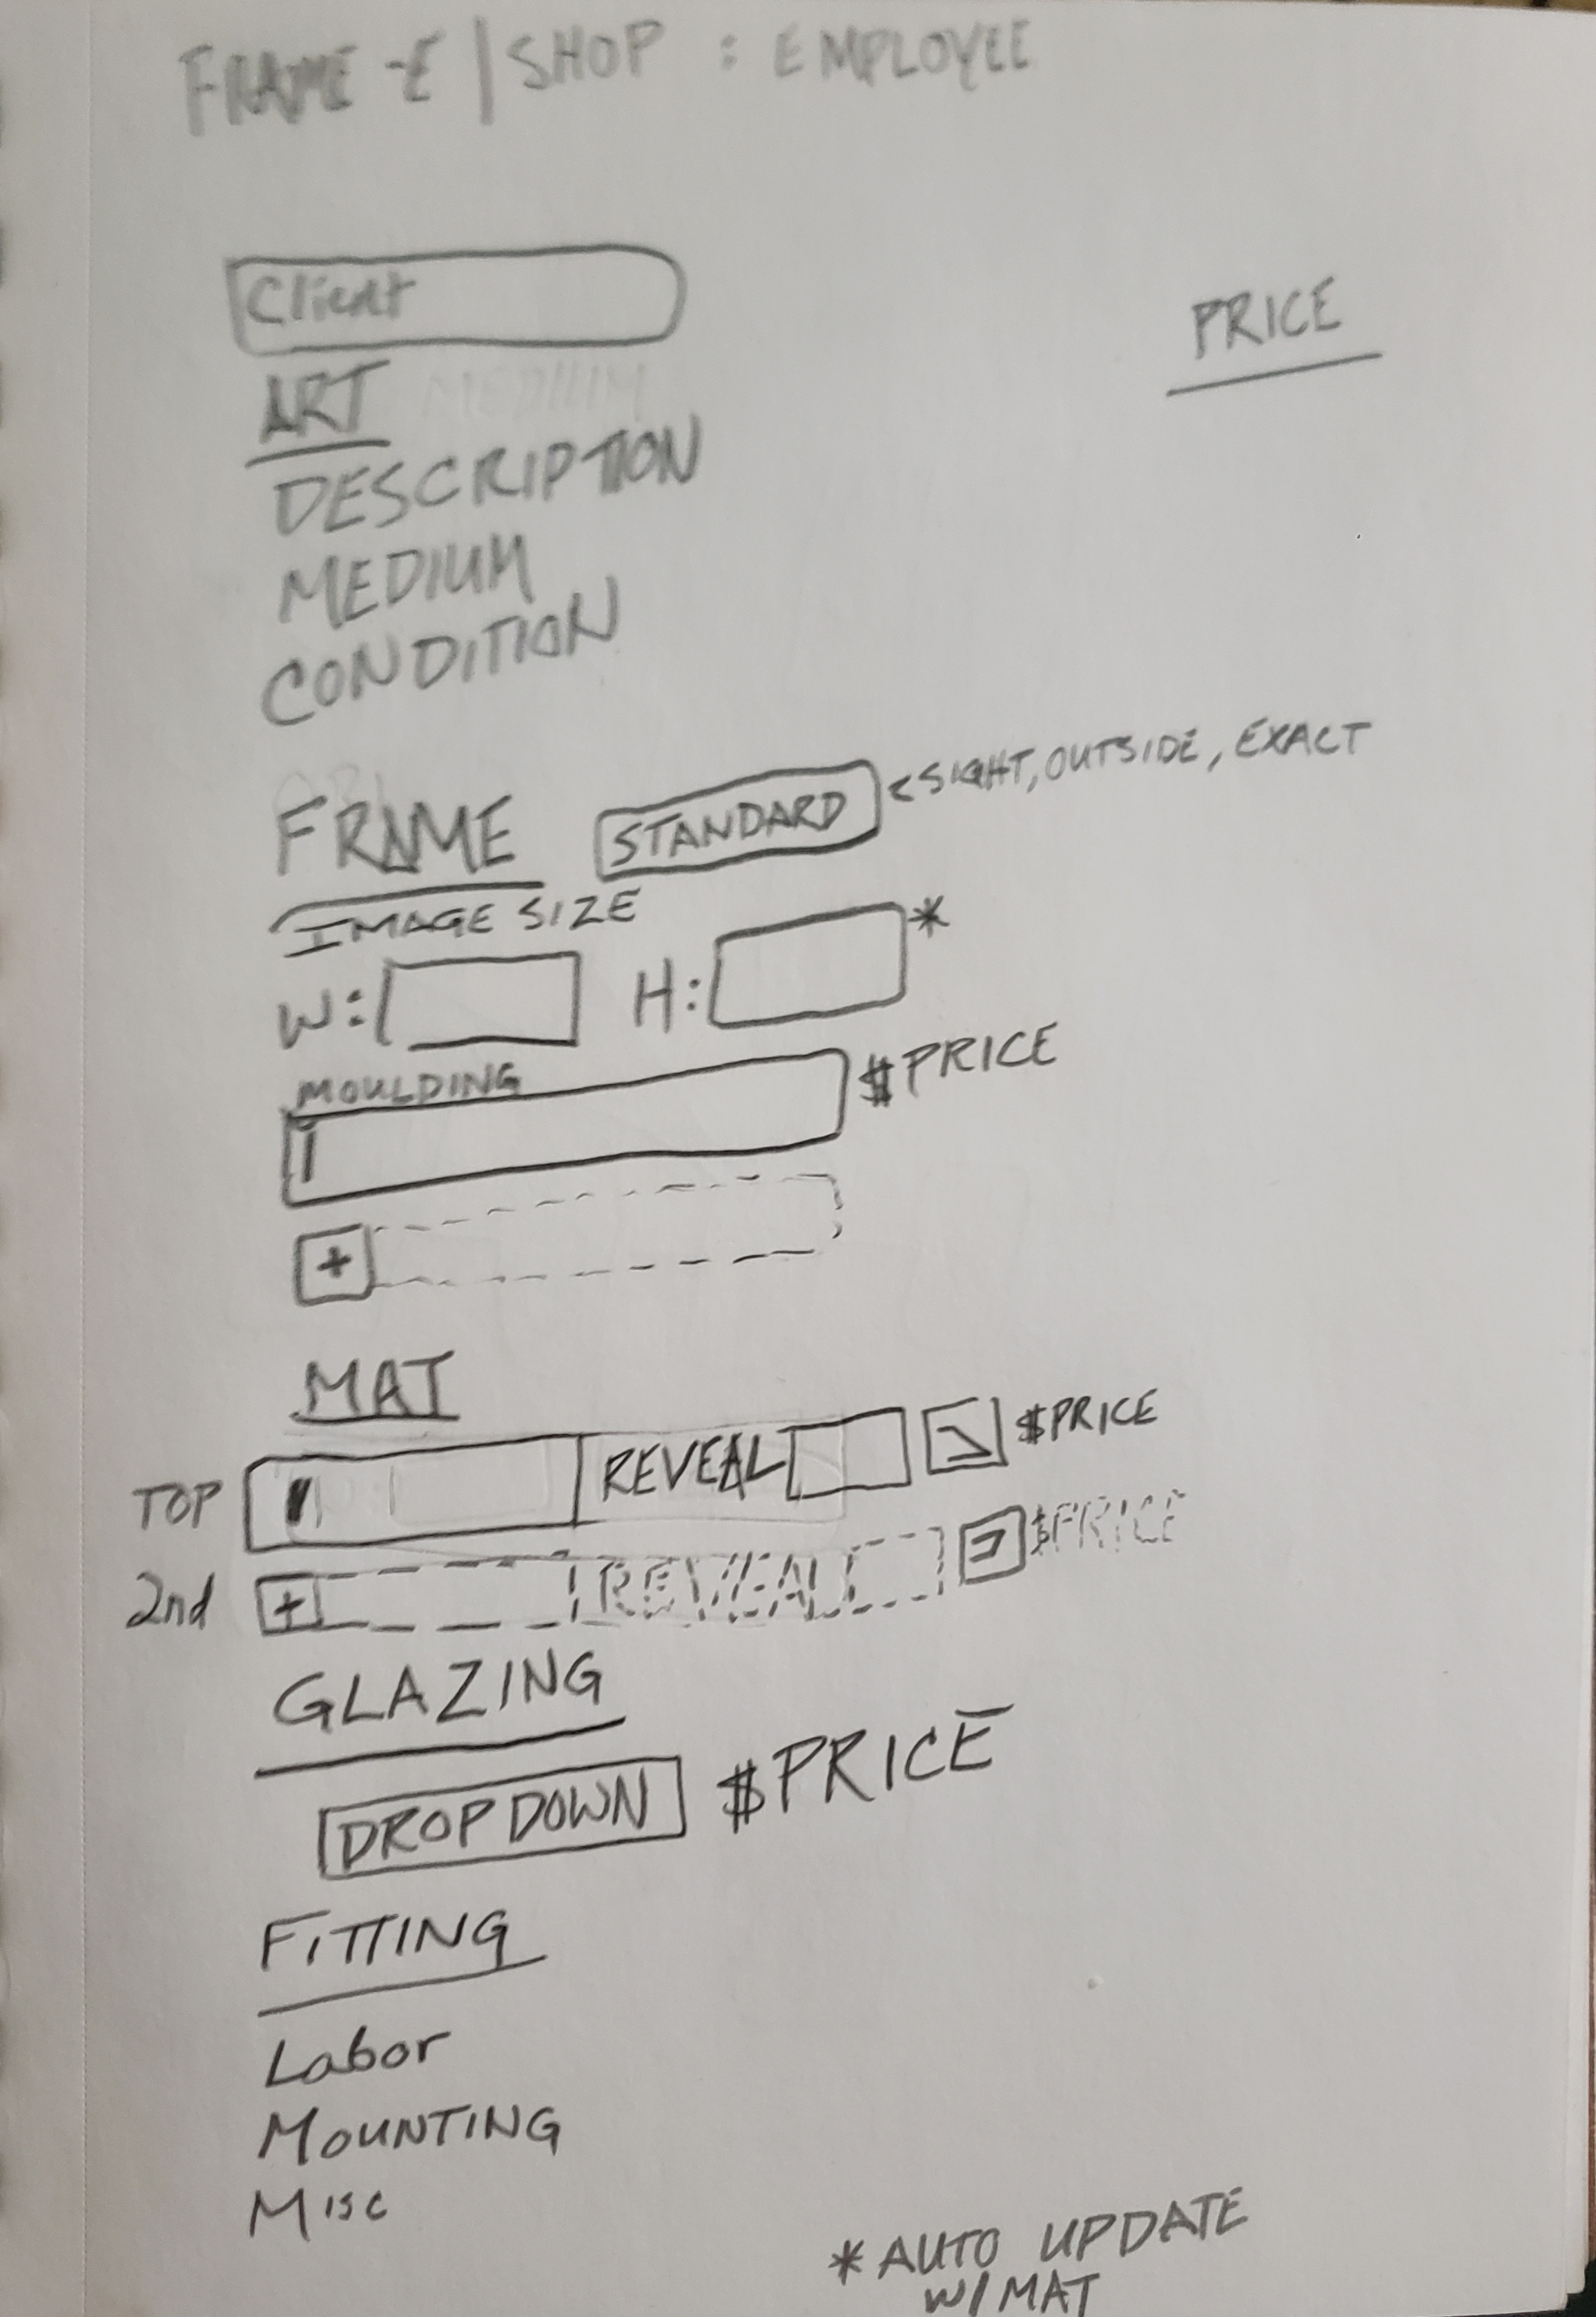 FRAME-E | SHOP : EMPLOYEE
Client
PRICE
ART MEDIUM
DESCRIPTION
MEDIUM
CONDITION
FRAME STANDARD < SIGHT, OUTSIDE, EXACT
IMAGE SIZE
W: H: *
MOULDING $PRICE
+
MAT
TOP REVEAL $PRICE
2nd + REVEAL $PRICE
GLAZING
DROPDOWN $PRICE
FITTING
Labor
MOUNTING
Misc
* AUTO UPDATE
W/ MAT